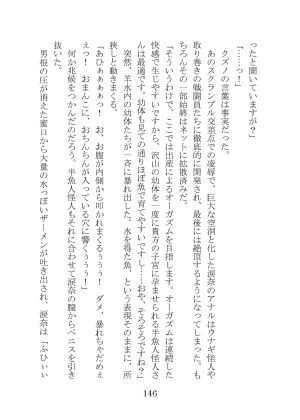 ったと聞いていますが？」
「……っ！」
クズノの言葉は事実だった。
あのスクランブル交差点での凌辱で、巨大な空洞とした涙奈のアナルはウナギ怪人や
取り巻きの戦闘員たちに徹底的に開発され、最後には絶頂するようになってしまった。も
ちろんその一部始終はネットに拡散済みだ。
「そういうわけで、ここでは出産によるオーガズムを目指します。オーガズムは連続した
快感で生じやすいですから、沢山の幼体を一度に貴方の子宮に孕ませられる半魚人怪人さ
んは最適です。幼体も見ての通りほぼ魚で育てやすいですし……おや、そろそろですね？」
突然、羊水内の幼体たちが一斉に暴れ出した。水を得た魚、という表現そのままに、所
狭しと動きまくる。
「あひぁぁぁっ！　お、お腹が内側から叩かれまくるぅぅ！　ダメ、暴れちゃだめえ
ぇっ！　おまんこに、おちんちんが入っている穴に響くぅぅぅ！」
何か兆候をつかんだのだろう。半魚人怪人もそれに合わせて涙奈の膣からペニスを引き
抜いた。
男根の圧が消えた蜜口から大量の水っぽいザーメンが吐き出され、涙奈は「ふひぃぃ
146